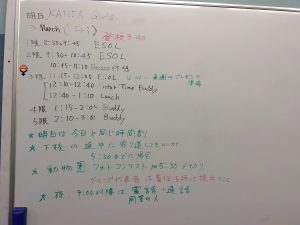 明日 KANDA Girls
3 March (Fri)
1限 8:50-9:45 ESOL
2限 9:50-10:45 ESOL
10:45-11:10 Recess 休憩
3限 11:15-12:05 ESOL
12:10-12:40 Inter Time Buddy
12:40-1:10 Lunch
4限 1:15-2:05 Buddy
5限 2:10-3:01 Buddy
*明日は今日と同じ時間割
*下校の途中に寄り道してもいいが
5:30までに帰宅
*動物園 フォトコンテスト pm5:30〆切り
グループ代表者は責任を持って提出のこと
*夜、9:00以降は電話・通話